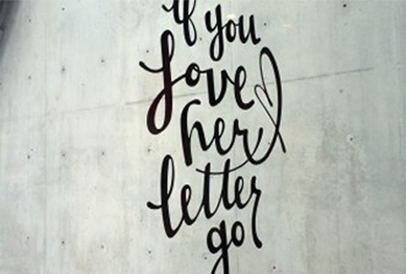 if you
love
her
letter
go